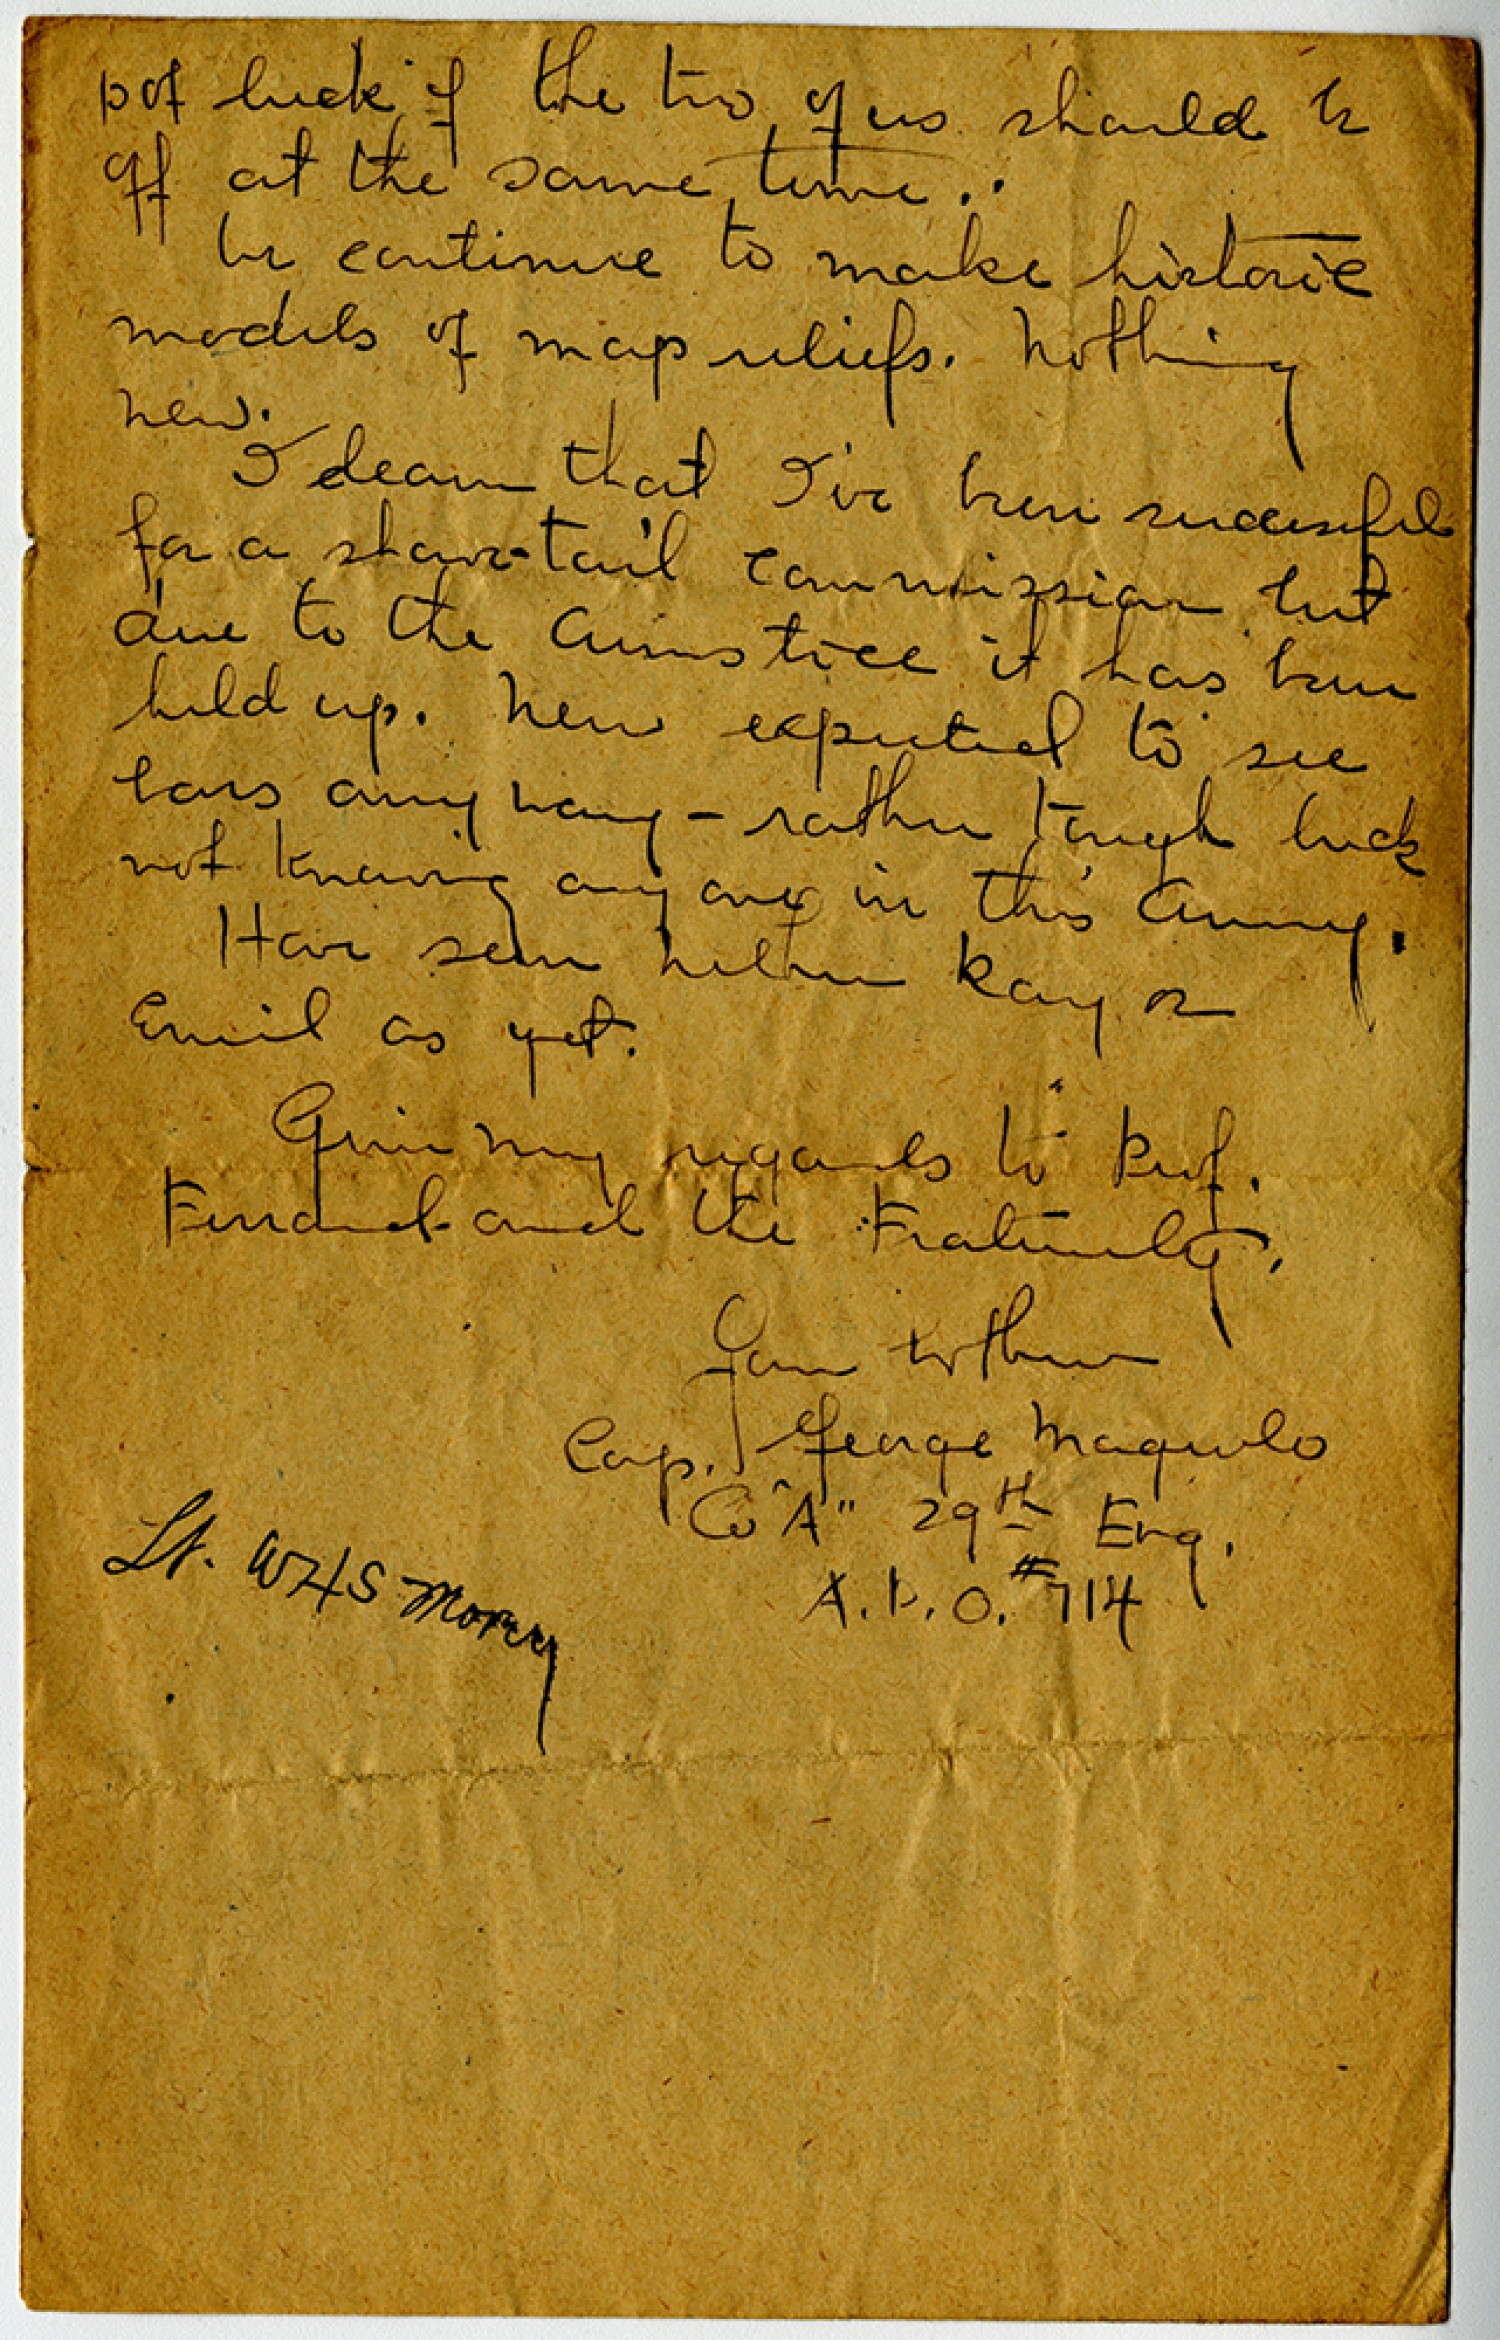 pot luck if the two of us should be
off at the same time..
We continue to make historic
models of map reliefs. Nothing
new.
I learn that I've been successful
for a shave-tail commission but
due to the Armistice it has been
held up. Never expected to see
bars anyway - rather tough luck
not knowing anyone in this Army.
Have seen neither Kay or
Emil as yet.
Give my regards to Prof.
Ferrand and the Fraternity.
Your brother
Corp. George Maguolo
Co "A" 29th Eng.
A.P.O. #714
Lt. WHS Morey